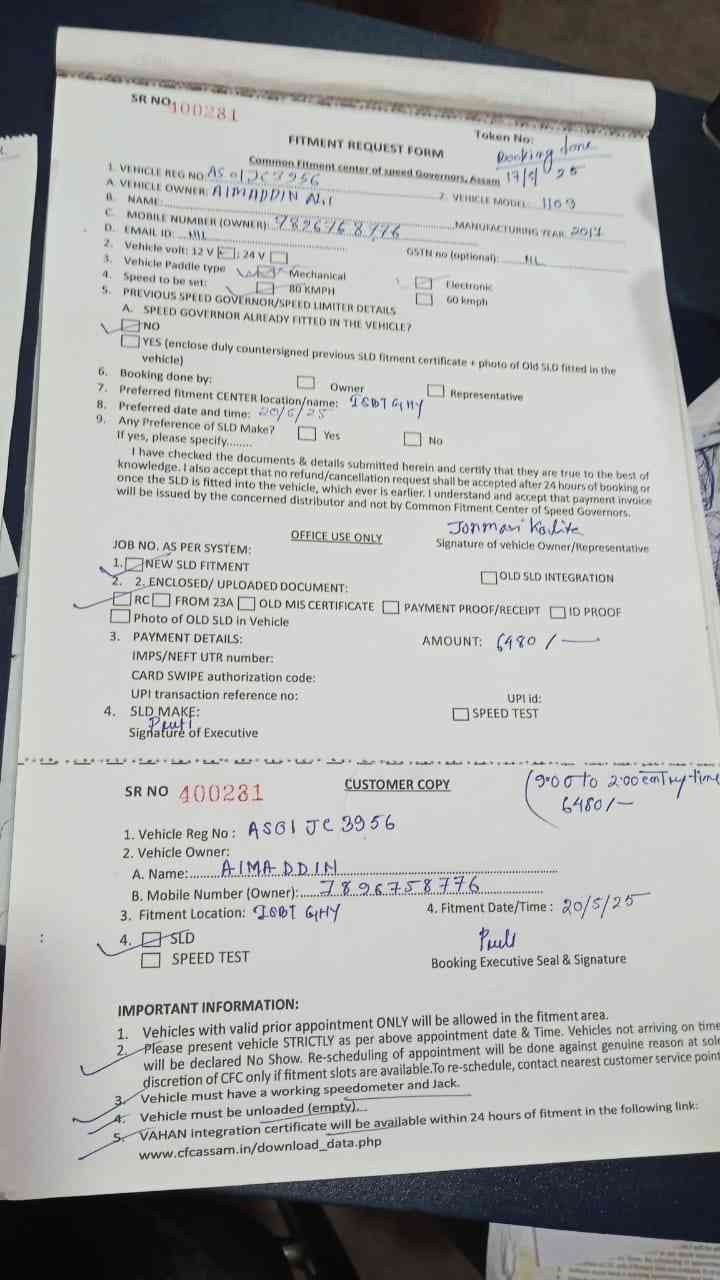 SR NO. 400281
Token No:
Booking done
FITMENT REQUEST FORM
Common Fitment center of speed Governors, Assam
1. VEHICLE REG NO: AS01JC3956
A. VEHICLE OWNER: AIMADDIN ALI
2. VEHICLE MODEL: 1109
B. NAME:
C. MOBILE NUMBER (OWNER): 7896758776
MANUFACTURING YEAR: 2017
D. EMAIL ID: NIL
GSTN no (optional): NIL
2. Vehicle volt: 12 V ; 24 V
3. Vehicle Paddle type Mechanical Electronic
4. Speed to be set: 80 KMPH 60 kmph
5. PREVIOUS SPEED GOVERNOR/SPEED LIMITER DETAILS
A. SPEED GOVERNOR ALREADY FITTED IN THE VEHICLE?
NO
YES (enclose duly countersigned previous SLD fitment certificate + photo of Old SLD fitted in the
vehicle)
6. Booking done by: Owner Representative
7. Preferred fitment CENTER location/name: ISBT GHY
8. Preferred date and time: 20/5/25
9. Any Preference of SLD Make? Yes No
If yes, please specify........
I have checked the documents & details submitted herein and certify that they are true to the best of
knowledge. I also accept that no refund/cancellation request shall be accepted after 24 hours of booking or
once the SLD is fitted into the vehicle, which ever is earlier. I understand and accept that payment invoice
will be issued by the concerned distributor and not by Common Fitment Center of Speed Governors.
OFFICE USE ONLY
Signature of vehicle Owner/Representative
JOB NO. AS PER SYSTEM:
1. NEW SLD FITMENT OLD SLD INTEGRATION
2. 2. ENCLOSED/ UPLOADED DOCUMENT:
RC FROM 23A OLD MIS CERTIFICATE PAYMENT PROOF/RECEIPT ID PROOF
Photo of OLD SLD in Vehicle
3. PAYMENT DETAILS: AMOUNT: 6480/-
IMPS/NEFT UTR number:
CARD SWIPE authorization code:
UPI transaction reference no: UPI id:
4. SLD MAKE: SPEED TEST
Signature of Executive
SR NO 400281
CUSTOMER COPY
(9:00 to 2:00 entry time
6480/-
1. Vehicle Reg No : AS01 JC 3956
2. Vehicle Owner:
A. Name: AIMADDIN
B. Mobile Number (Owner): 7896758776
3. Fitment Location: ISBT GHY 4. Fitment Date/Time : 20/5/25
4. SLD
SPEED TEST
Booking Executive Seal & Signature
IMPORTANT INFORMATION:
1. Vehicles with valid prior appointment ONLY will be allowed in the fitment area.
2. Please present vehicle STRICTLY as per above appointment date & Time. Vehicles not arriving on time
will be declared No Show. Re-scheduling of appointment will be done against genuine reason at sole
discretion of CFC only if fitment slots are available.To re-schedule, contact nearest customer service point
3. Vehicle must have a working speedometer and Jack.
4. Vehicle must be unloaded (empty).
5. VAHAN integration certificate will be available within 24 hours of fitment in the following link:
www.cfcassam.in/download_data.php